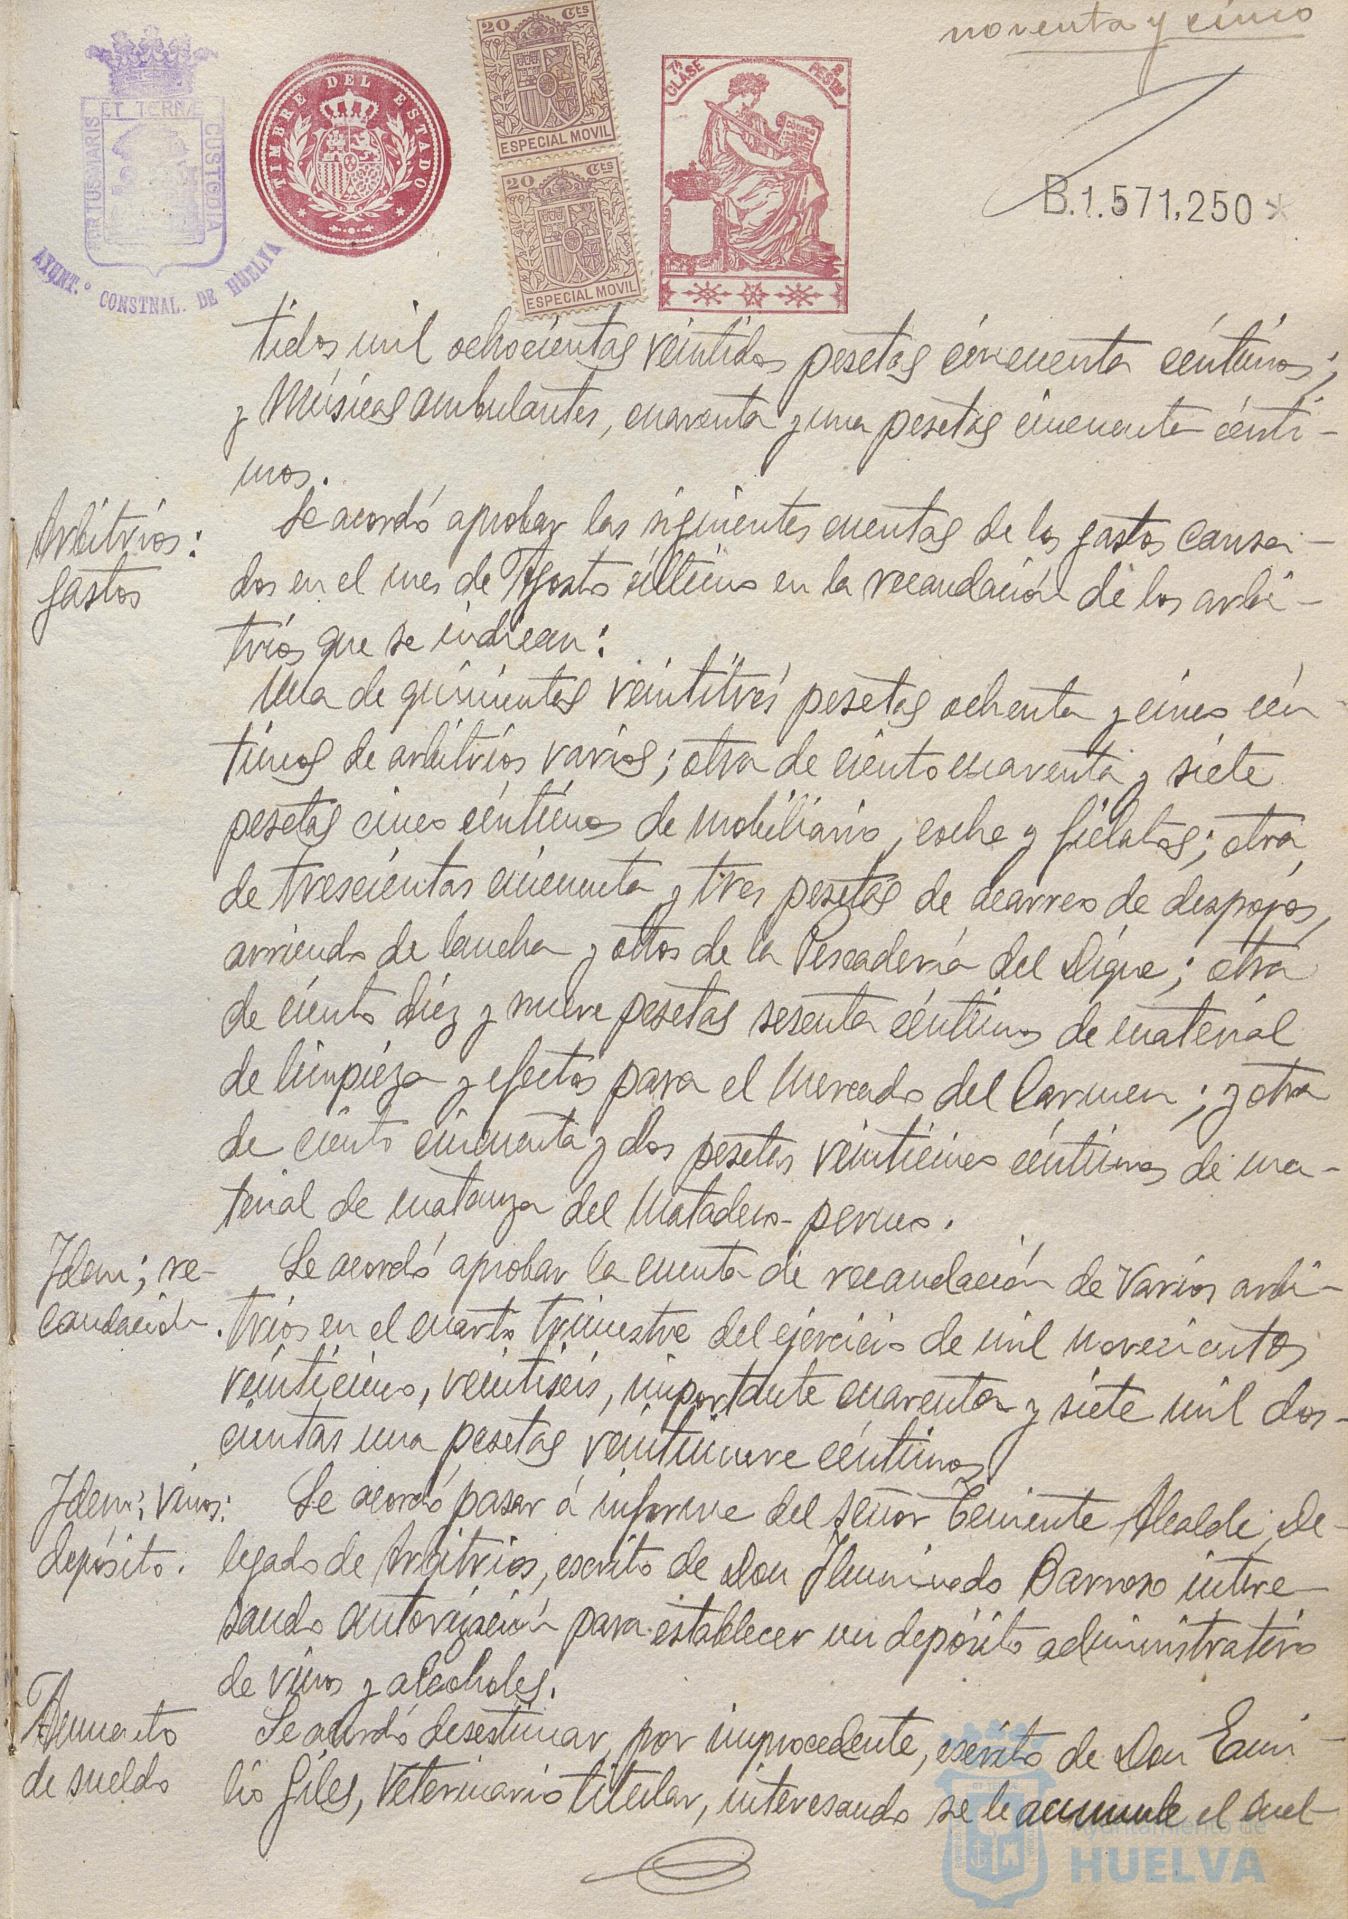 noventa y cinco
PORTUS MARIS
ET TERRÆ
CUSTODIA
AYUNT.º CONSTNAL. DE HUELVA
TIMBRE DEL ESTADO
20 Cts
ESPECIAL MOVIL
20 Cts
ESPECIAL MOVIL
7ª CLASE
B.1.571.250
tidos mil ochocientas veintidos pesetas cincuenta céntimos;
y Músicas ambulantes, cuarenta y una pesetas cincuenta cénti-
mos.
Arbitrios:
gastos
Se acordó aprobar las siguientes cuentas de los gastos causa-
dos en el mes de Agosto último en la recaudación de los arbi-
trios que se indican:
Una de quinientas veintitrés pesetas ochenta y cinco cén-
timos de arbitrios varios; otra de ciento cuarenta y siete
pesetas cinco céntimos de mobiliario, coche y fielatos; otra
de trescientas cincuenta y tres pesetas de acarreo de despojos,
arriendo de lancha y otros de la Pescadería del Dique; otra
de ciento diez y nueve pesetas sesenta céntimos de material
de limpieza y efectos para el Mercado del Carmen; y otra
de ciento cincuenta y dos pesetas veinticinco céntimos de ma-
terial de matanza del Matadero-permo.
Idem; re-
caudación.
Se acordó aprobar la cuenta de recaudación de varios arbi-
trios en el cuarto trimestre del ejercicio de mil novecientos
veinticinco, veintiseis, importante cuarenta y siete mil dos-
cientas una pesetas veintinueve céntimos
Idem; vinos:
depósito.
Se acordó pasar á informe del señor Teniente Alcalde, De-
legado de Arbitrios, escrito de Don Iluminado Barroso intere-
sando autorización para establecer un depósito administrativo
de vinos y alcoholes.
Aumento
de sueldo
Se acordó desestimar, por improcedente, escrito de Don Emi-
lio Giles, Veterinario titular, interesando se le acumule el suel-
Ayuntamiento de
HUELVA